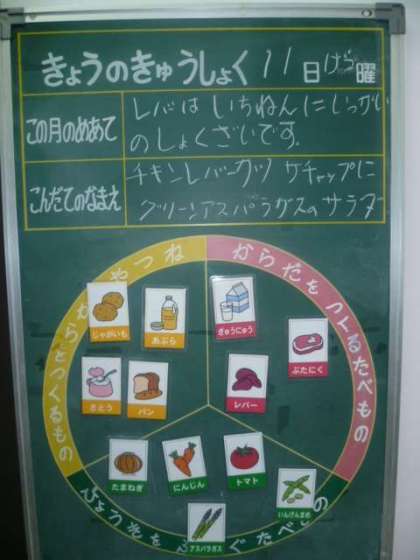 きょうのきゅうしょく 11日 げつ曜
この月のめあて
レバは いちねんに いっかい
のしょくざいです。
こんだてのなまえ
チキンレバーカツ ケチャップに
グリーンアスパラガスのサラダ
ねつや
からをつくるもの
からだをつくるたべもの
じゃがいも
あぶら
ぎゅうにゅう
ぶたにく
さとう
パン
レバー
たまねぎ
にんじん
トマト
いんげんまめ
アスパラガス